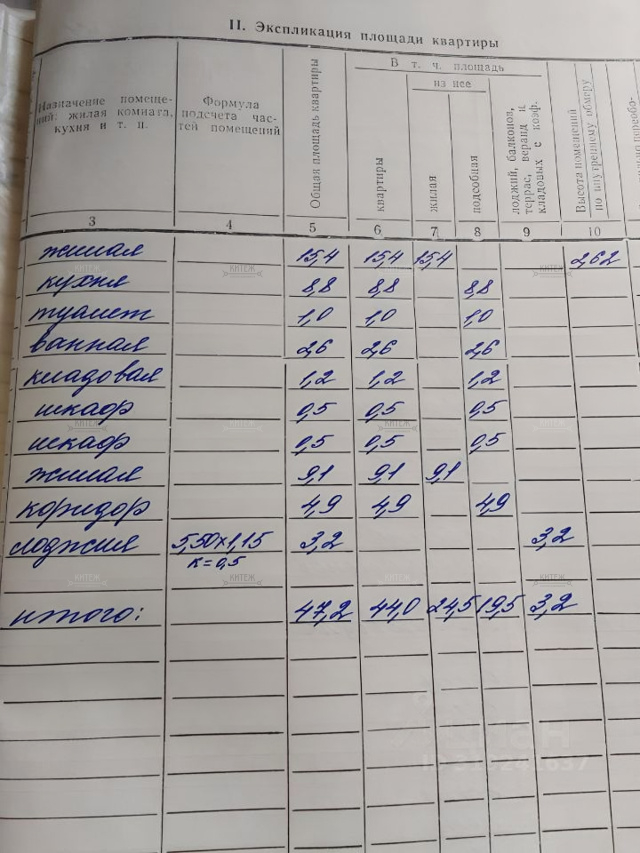 II. Экспликация площади квартиры
Назначение помеще-
ний: жилая комната,
кухня и т. п.
Формула
подсчета час-
тей помещений
Общая площадь квартиры
В т. ч. площадь
квартиры
из нее
жилая
подсобная
лоджий, балконов,
террас, веранд и
кладовых с коэф.
Высота помещений
по внутреннему обмеру
3 4 5 6 7 8 9 10
жилая 15,4 15,4 15,4 2,62
кухня 8,8 8,8 8,8
туалет 1,0 1,0 1,0
ванная 2,6 2,6 2,6
кладовая 1,2 1,2 1,2
шкаф 0,5 0,5 0,5
шкаф 0,5 0,5 0,5
жилая 9,1 9,1 9,1
коридор 4,9 4,9 4,9
лоджия 5,50x1,15 3,2 3,2
К=0,5
итого: 47,2 44,0 24,5 19,5 3,2
КИТЕЖ